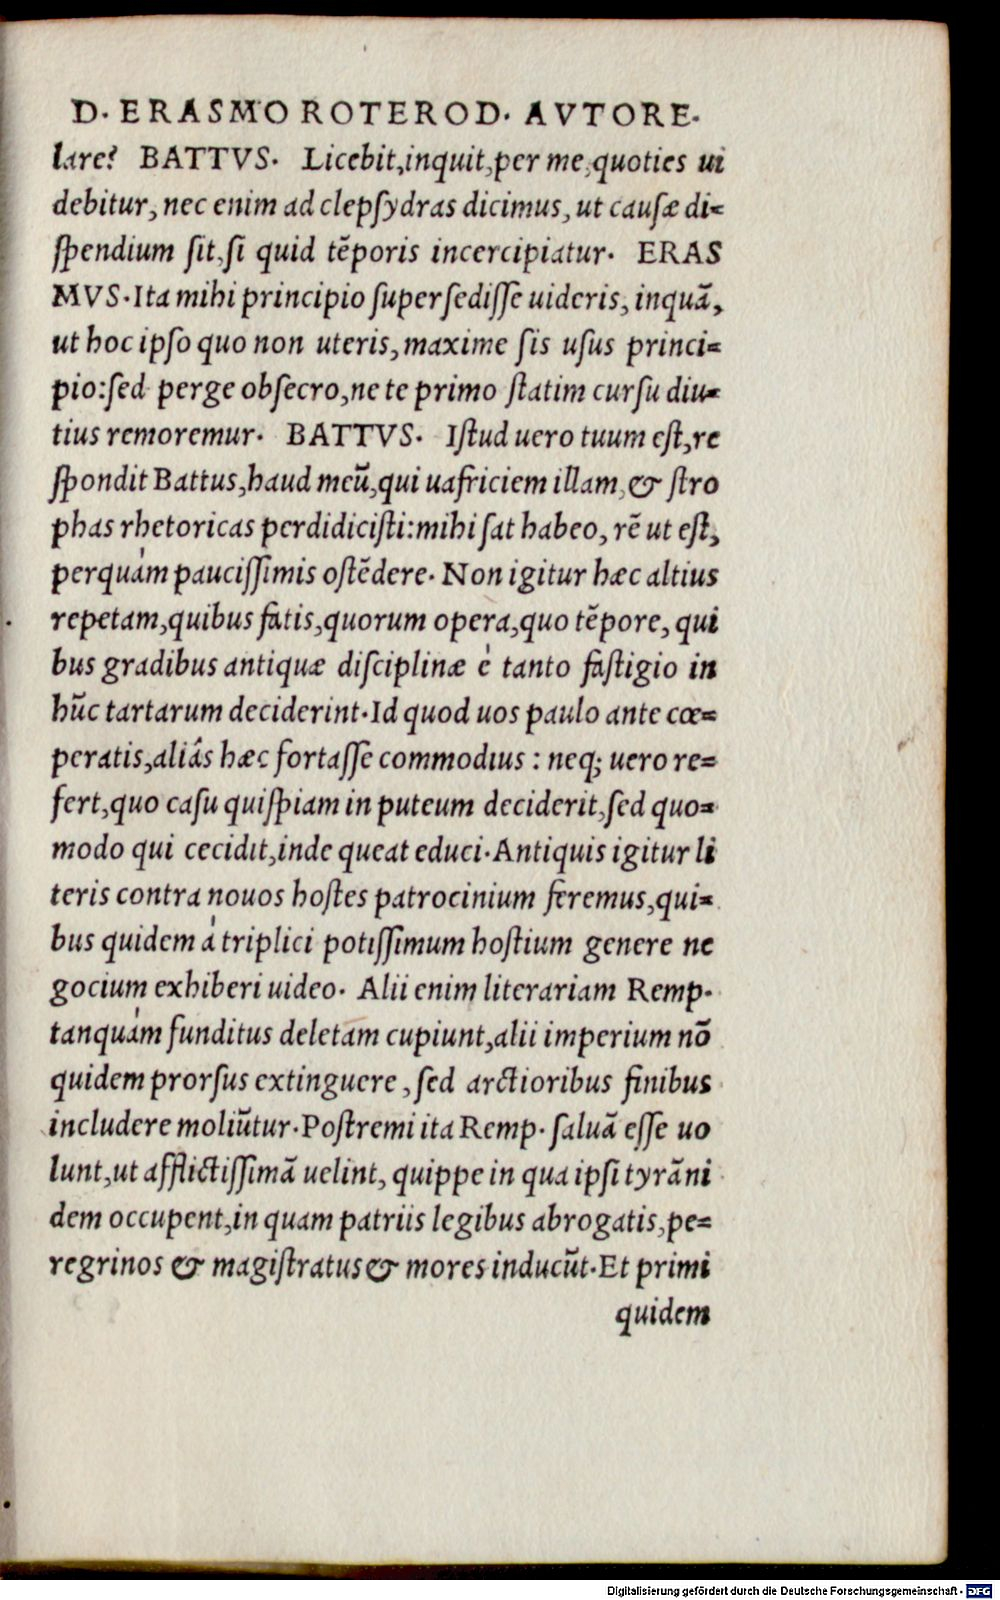 D. ERASMO ROTEROD. AVTORE.
lare? BATTVS. Licebit,inquit,per me,quoties ui
debitur, nec enim ad clepſydras dicimus, ut cauſæ di=
ſpendium ſit,ſi quid tēporis incercipiatur. ERAS
MVS.Ita mihi principio ſuperſediſſe uideris, inquā,
ut hoc ipſo quo non uteris, maxime ſis uſus princi=
pio:ſed perge obſecro,ne te primo ſtatim curſu diu=
tius remoremur. BATTVS. Iſtud uero tuum eſt,re
ſpondit Battus,haud meū,qui uafriciem illam,& ſtro
phas rhetoricas perdidiciſti:mihi ſat habeo, rē ut eſt,
perquàm pauciſſimis oſtēdere. Non igitur hæc altius
repetam,quibus fatis,quorum opera,quo tēpore, qui
bus gradibus antiquæ diſciplinæ è tanto faſtigio in
hūc tartarum deciderint.Id quod uos paulo ante cœ=
peratis,aliàs hæc fortaſſe commodius : neq; uero re=
fert,quo caſu quiſpiam in puteum deciderit,ſed quo=
modo qui cecidit,inde queat educi.Antiquis igitur li
teris contra nouos hoſtes patrocinium feremus,qui=
bus quidem à triplici potiſſimum hoſtium genere ne
gocium exhiberi uideo. Alii enim literariam Remp.
tanquàm funditus deletam cupiunt,alii imperium nō
quidem prorſus extinguere , ſed arctioribus finibus
includere moliūtur.Poſtremi ita Remp. ſaluā eſſe uo
lunt,ut afflictiſſimā uelint, quippe in qua ipſi tyrāni
dem occupent,in quam patriis legibus abrogatis,pe=
regrinos & magiſtratus & mores inducūt.Et primi
quidem
Digitalisierung gefördert durch die Deutsche Forschungsgemeinschaft - DFG